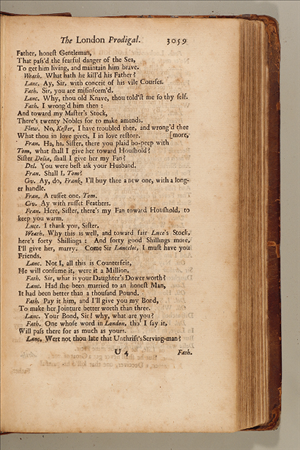 The London Prodigal. 3059
Father, honest Gentleman,
That pass'd the fearful danger of the Sea,
To get him living, and maintain him brave.
Weath. What hath he kill'd his Father?
Lanc. Ay, Sir, with conceit of his vile Courses.
Fath. Sir, you are misinform'd.
Lanc. Why, thou old Knave, thou told'st me so thy self.
Fath. I wrong'd him then:
And toward my Master's Stock,
There's twenty Nobles for to make amends.
Flow. No, Kester, I have troubled thee, and wrong'd thee
What thou in love gives, I in love restore. [more,
Fran. Ha, ha, Sister, there you plaid bo-peep with
Tom, what shall I give her toward Houshold?
Sister Delia, shall I give her my Fan?
Del. You were best ask your Husband.
Fran. Shall I, Tom?
Civ. Ay, do, Frank, I'll buy thee a new one, with a long-
er handle.
Fran. A russet one, Tom.
Civ. Ay with russet Feathers.
Fran. Here, Sister, there's my Fan toward Houshold, to
keep you warm.
Luce. I thank you, Sister.
Weath. Why this is well, and toward fair Luce's Stock,
here's forty Shillings: And forty good Shillings more,
I'll give her, marry. Come Sir Lancelot, I must have you
Friends.
Lanc. Not I, all this is Counterfeit,
He will consume it, were it a Million.
Fath. Sir, what is your Daughter's Dower worth?
Lanc. Had she been married to an honest Man,
It had been better than a thousand Pound.
Fath. Pay it him, and I'll give you my Bond,
To make her Jointure better worth than three.
Lanc. Your Bond, Sir! why, what are you?
Fath. One whose word in London, tho' I say it,
Will pass there for as much as yours.
Lanc. Wert not thou late that Unthrift's Serving-man?
U 4 Fath.